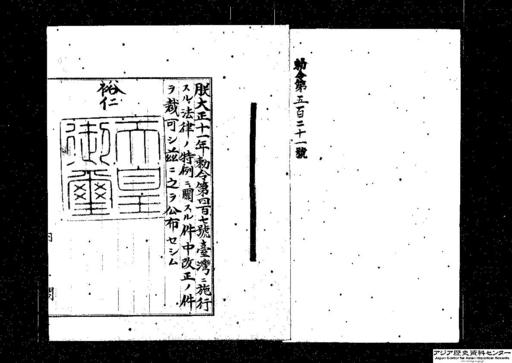 勅令第五百二十一號
朕大正十一年勅令第四百七號臺灣ニ施行
スル法律ノ特例ニ關スル件中改正ノ件
ヲ裁可シ茲ニ之ヲ公布セシム
裕仁
天皇
御璽
内
閣
アジア歴史資料センター
Japan Center for Asian Historical Records